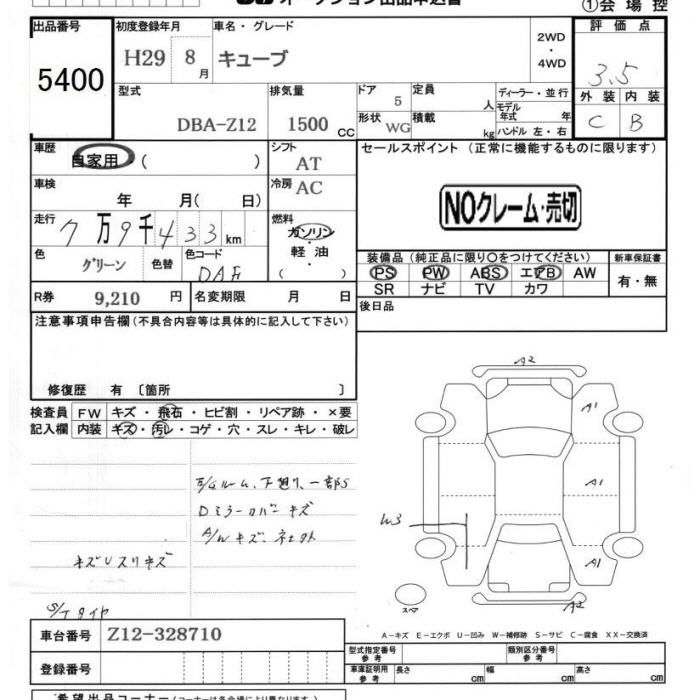 オークション出品申込書
①会場控
出品番号
5400
初度登録年月
H29 8月
車名・グレード
キューブ
2WD
・
4WD
評価点
3.5
型式
DBA-Z12
排気量
1500 CC
ドア
5
定員
人
形状
WG
積載
kg
ディーラー・並行
モデル年式 年
ハンドル 左・右
外装 内装
C B
車歴
自家用 ( )
シフト
AT
セールスポイント (正常に機能するものに限ります)
車検
年 月( 日)
冷房
AC
NOクレーム・売切
走行
7万9千433km
燃料
ガソリン
軽油
( )
色
グリーン
色替
色コード
装備品 (純正品に限り○をつけてください)
新車保証書
PS PW ABS エアB AW
SR ナビ TV カワ
有・無
R券 9,210 円
名変期限 月 日
後日品
注意事項申告欄 (不具合内容等は具体的に記入して下さい)
修復歴 有 〔箇所 〕
検査員記入欄
FW キズ・飛石・ヒビ割・リペア跡・×要
内装 キズ・汚レ・コゲ・穴・スレ・キレ・破レ
E/Gルーム、下廻り、一部S
Dミラーカバーキズ
A/Wキズ、
キズUスリキズ
S/Tタイヤ
A2
A1
A1
A1
A2
W3
スペア
A-キズ E-エクボ U-凹み W-補修跡 S-サビ C-腐食 XX-交換済
車台番号 Z12-328710
登録番号
型式指定番号 参考
類別区分番号 参考
車庫証明用 参考
長さ cm 幅 cm 高さ cm
希望出品コーナー (コーナーは各会場により異なります)